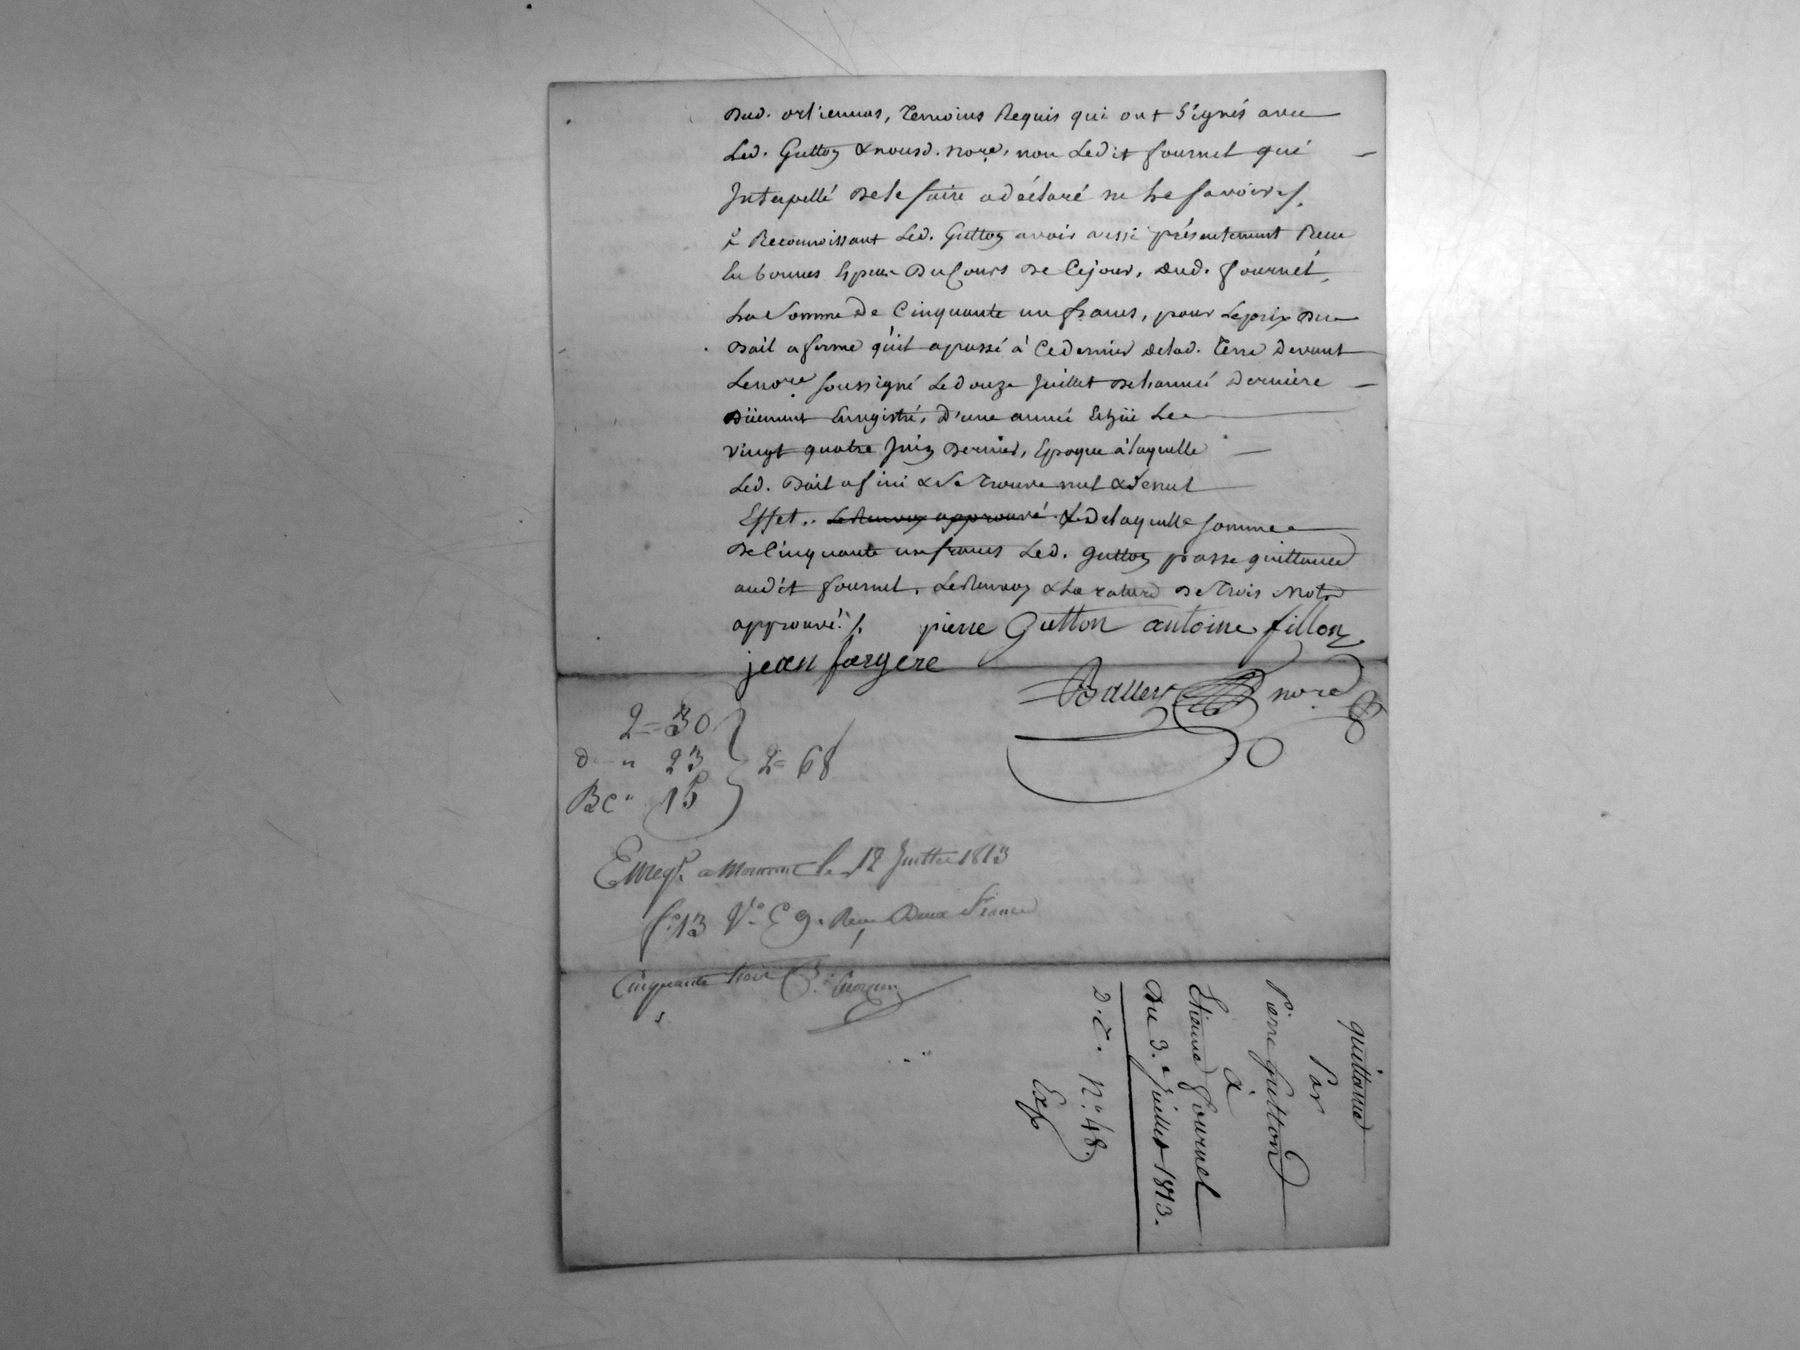 Dud. orlienas, Temoins Requis qui ont Signés avec
Led. Gutton & nousd. nore, non Ledit fournel qui
Interpellé De le faire a déclaré ne Le savoir /.
/ Reconnoissant Led. Gutton avoir aussi présentement Recu
En bonnes Especes Du Cours De Cejour, Dud. fournel,
La Somme De Cinquante un francs, pour Leprix Du
Bail a ferme qu'il a passé à Ce dernier Delad. Terre Devant
Lenore soussigné Le douze Juillet De L'année Derniere
Düement Enregistré, D'une année Echüe Le
vingt quatre Juin Dernier, Epoque à laquelle
Led. Bail a fini & Se Trouve nul & De nul
Effet. Le Renvoy approuvé. & De laquelle somme
De Cinquante un francs Led. gutton passe quittance
audit fournel. Le Renvoy & La rature De Trois Mots
approuvé /. pierre Gutton antoine fillon
jean fargere
nore
2 = 30
d — " 23
2 = 68
Bc " 15
Enregt. a Mornant le 12 Juillet 1813
fo. 13 Vo. C 9. Recu Deux francs
Cinquante trois C.
quittance
Par
Pierre gutton
à
Etienne fournel
Du 3. Juillet 1813.
D. C. No. 48.
Exp